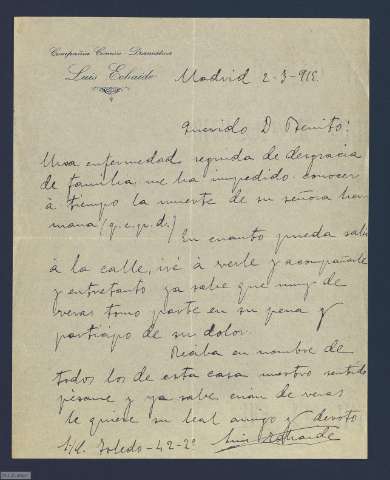 Compañía Cómico Dramática
Luis Echaide
Madrid 2-3-915.
Querido D. Benito:
Una enfermedad seguida de desgracia
de familia, me ha impedido conocer
á tiempo la muerte de su señora her-
mana (q. e. p. d.)
En cuanto pueda salir
á la calle, iré á verle y acompañarle
y entretanto ya sabe que muy de
veras tomo parte en su pena y
participo de su dolor.
Reciba en nombre de
todos los de esta casa nuestro sentido
pésame y ya sabe cuan de veras
le quiere su leal amigo y devoto
Luis Echaide
Toledo-42-2º